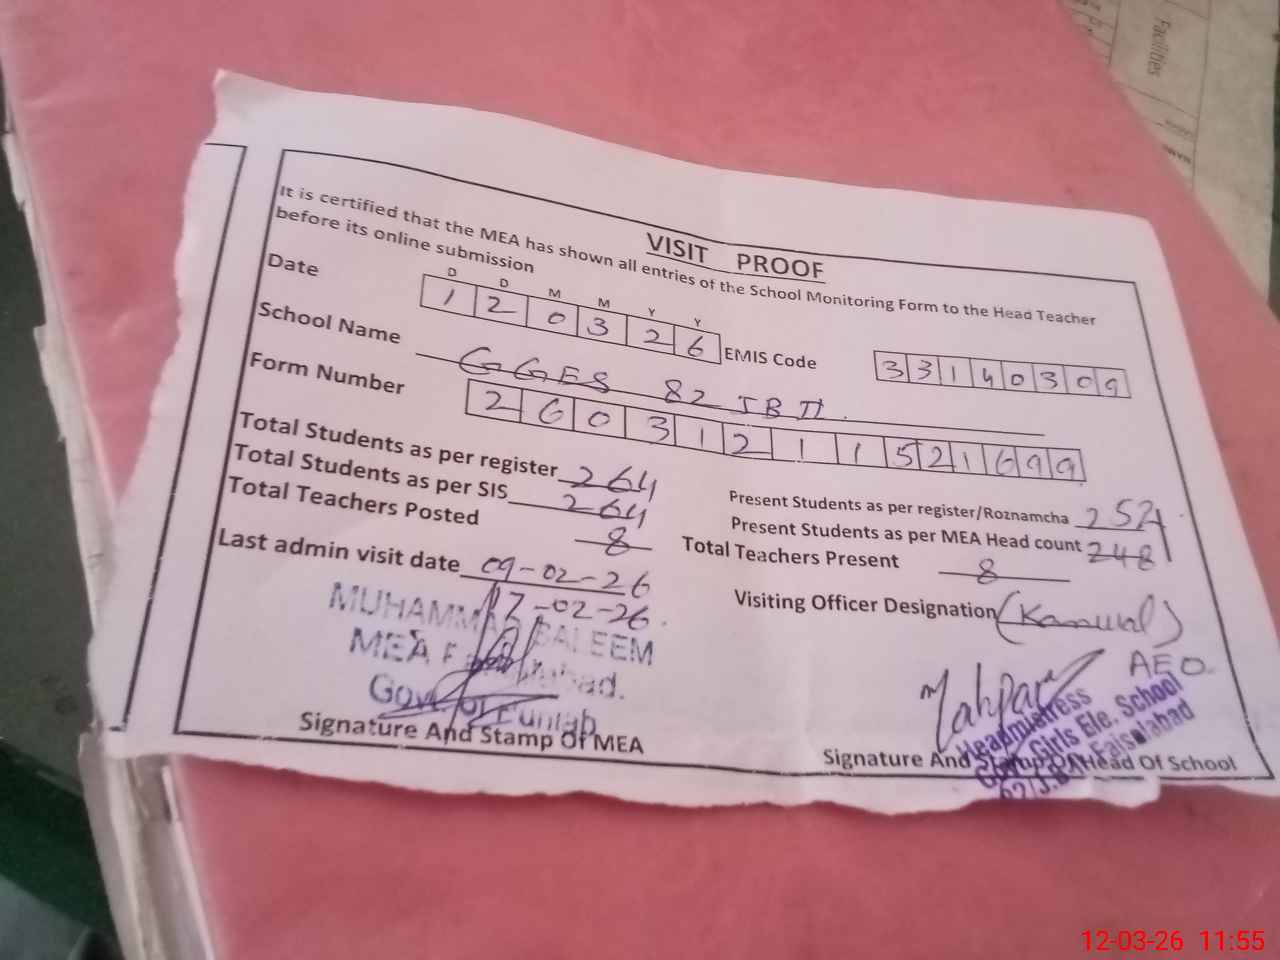 Facilities
VISIT PROOF
It is certified that the MEA has shown all entries of the School Monitoring Form to the Head Teacher
before its online submission
D D M M Y Y
Date 1 2 0 3 2 6 EMIS Code 3 3 1 4 0 3 0 9
School Name GGES 82 JB II.
Form Number 2 6 0 3 1 2 1 1 5 2 1 6 9 9
Total Students as per register 264
Present Students as per register/Roznamcha 252
Total Students as per SIS 264
Present Students as per MEA Head count 248
Total Teachers Posted 8
Total Teachers Present 8
Last admin visit date 09-02-26
17-02-26.
Visiting Officer Designation (Kanwal)
AEO.
MUHAMMAD SALEEM
MEA Faisalabad.
Govt. of Punjab
Signature And Stamp Of MEA
Mahpara
Headmistress
Girls Ele. School
Faisalabad
Signature And Stamp Of Head Of School
12-03-26 11:55